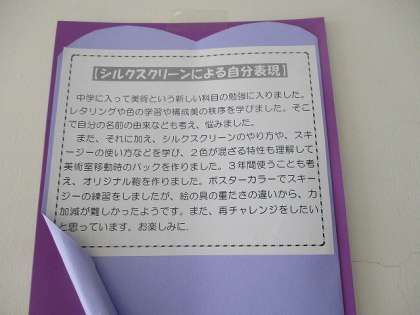 【シルクスクリーンによる自分表現】
中学に入って美術という新しい科目の勉強に入りました。
レタリングや色の学習や構成美の秩序を学びました。そこ
で自分の名前の由来なども考え、悩みました。
また、それに加え、シルクスクリーンのやり方や、スキ
ージーの使い方などを学び、２色が混ざる特性も理解して
美術室移動時のバックを作りました。３年間使うことも考
え、オリジナル鞄を作りました。ポスターカラーでスキー
ジーの練習をしましたが、絵の具の重たさの違いから、力
加減が難しかったようです。また、再チャレンジをしたい
と思っています。お楽しみに．